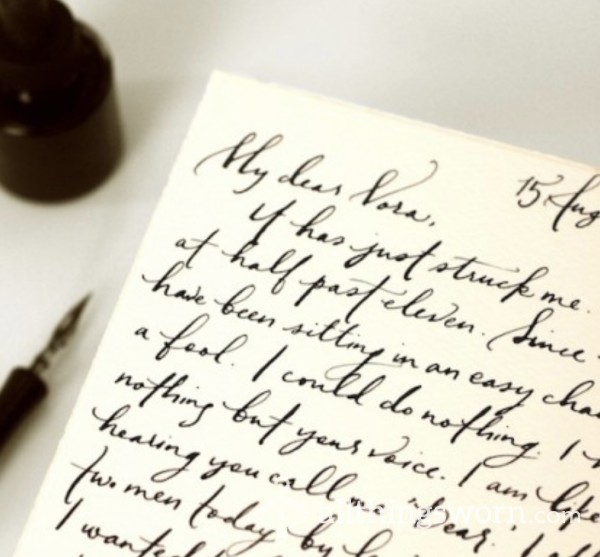 My dear Nora,
15 Aug
It has just struck me.
at half past eleven. Since
have been sitting in an easy cha
a fool. I could do nothing. I
nothing but your voice. I am like
hearing you call Dear.
allthingsworn.com
two men today by
I wanted